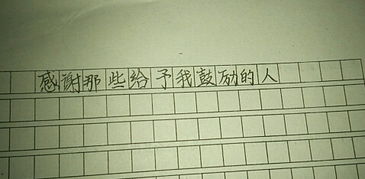 感谢那些给予我鼓励的人